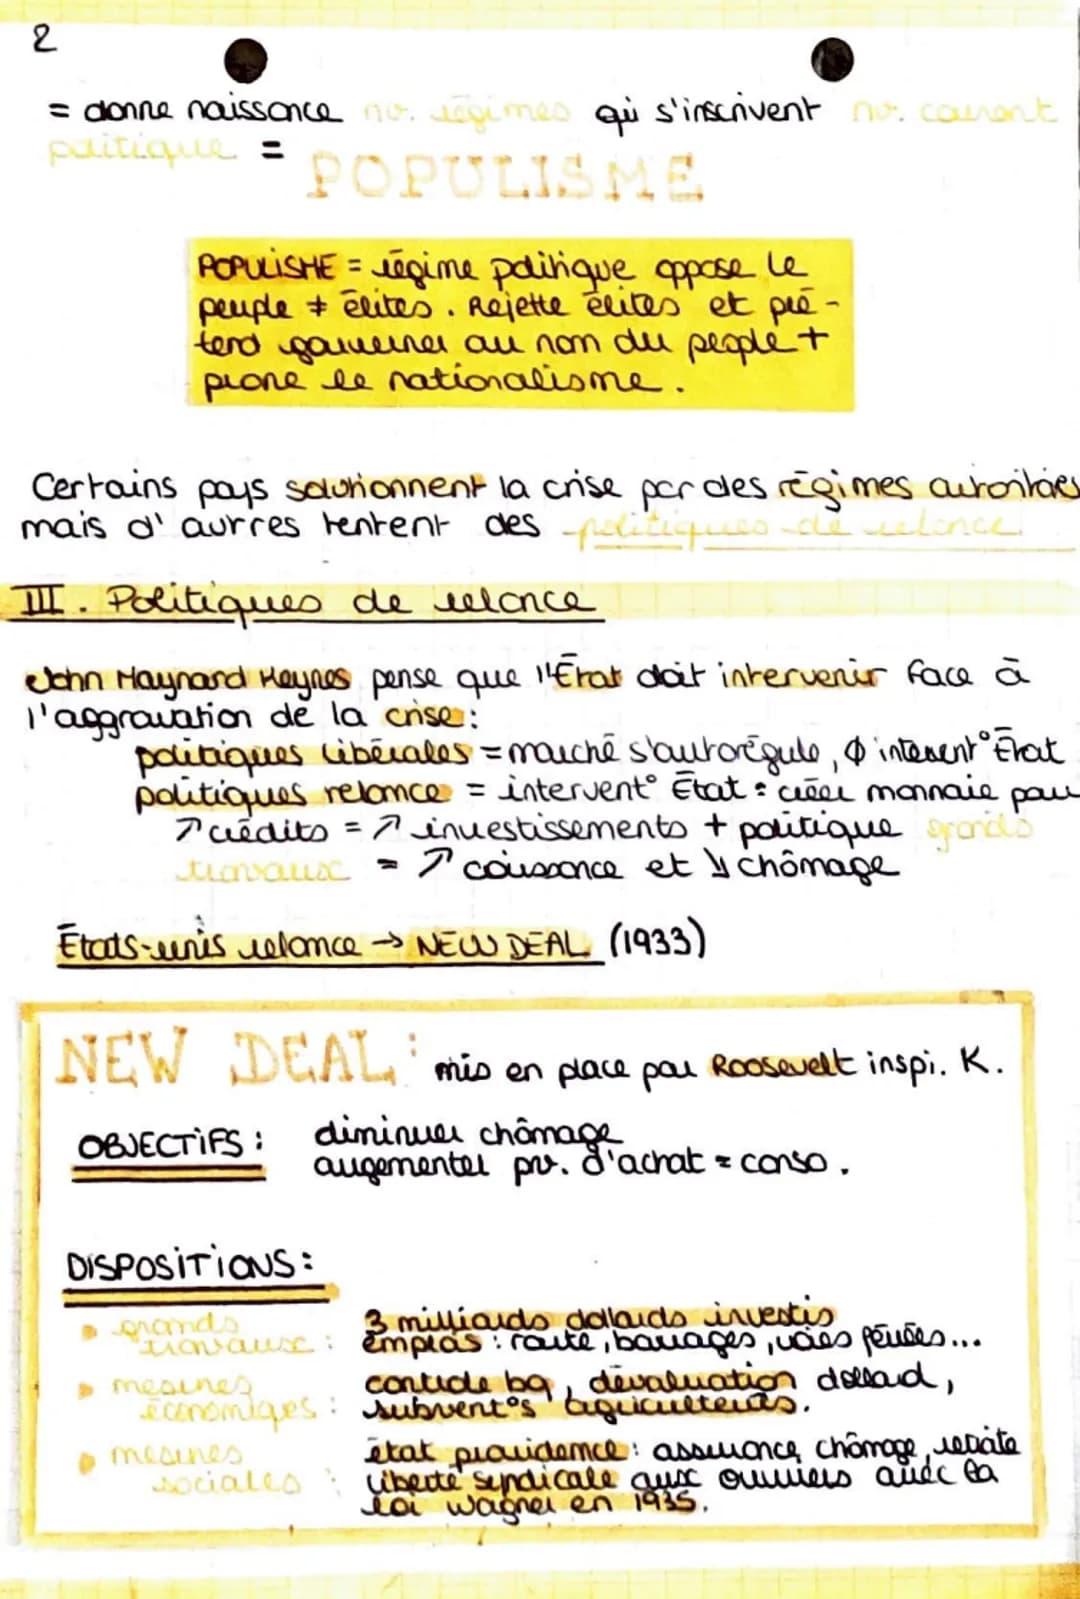 2
= donne naissance nv. régimes qui s'inscrivent nv. courant
politique =
POPULISME
POPULISME = régime politique oppose le
peuple ≠ élites. Rejette élites et pré-
tend gouverner au nom du peuple +
prone le nationalisme.
Certains pays solutionnent la crise par des régimes autoritaires
mais d'autres tentent des politiques de relance
III. Politiques de relance
John Maynard Keynes pense que l'État doit intervenir face à
l'aggravation de la crise :
politiques libérales = marché s'autorégule, Ø intervent° État
politiques relance = intervent° État : créer monnaie pour
↗ crédits = ↗ investissements + politique grands
travaux = ↗ croissance et ↘ chômage
États-unis relance → NEW DEAL (1933)
NEW DEAL : mis en place par Roosevelt inspi. K.
OBJECTIFS : diminuer chômage
augementer pv. d'achat = conso.
DISPOSITIONS :
grands 3 milliards dollards investis
travaux : emplois : route, barrages, voies férrées...
mesures controle bq, dévaluation dollard,
économiqes : subvent°s agriculteurs.
mesures état providence : assurance chômage, retraite
sociales : liberté syndicale aux ouvriers avec la
loi Wagner en 1935.